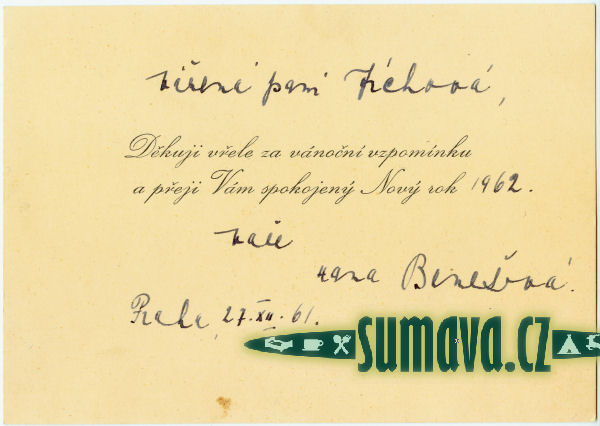 Vážená paní Tichová,
Děkuji vřele za vánoční vzpomínku
a přeji Vám spokojený Nový rok 1962.
Vaše
Hana Benešová.
Praha, 27.XII.61.
sumava.cz